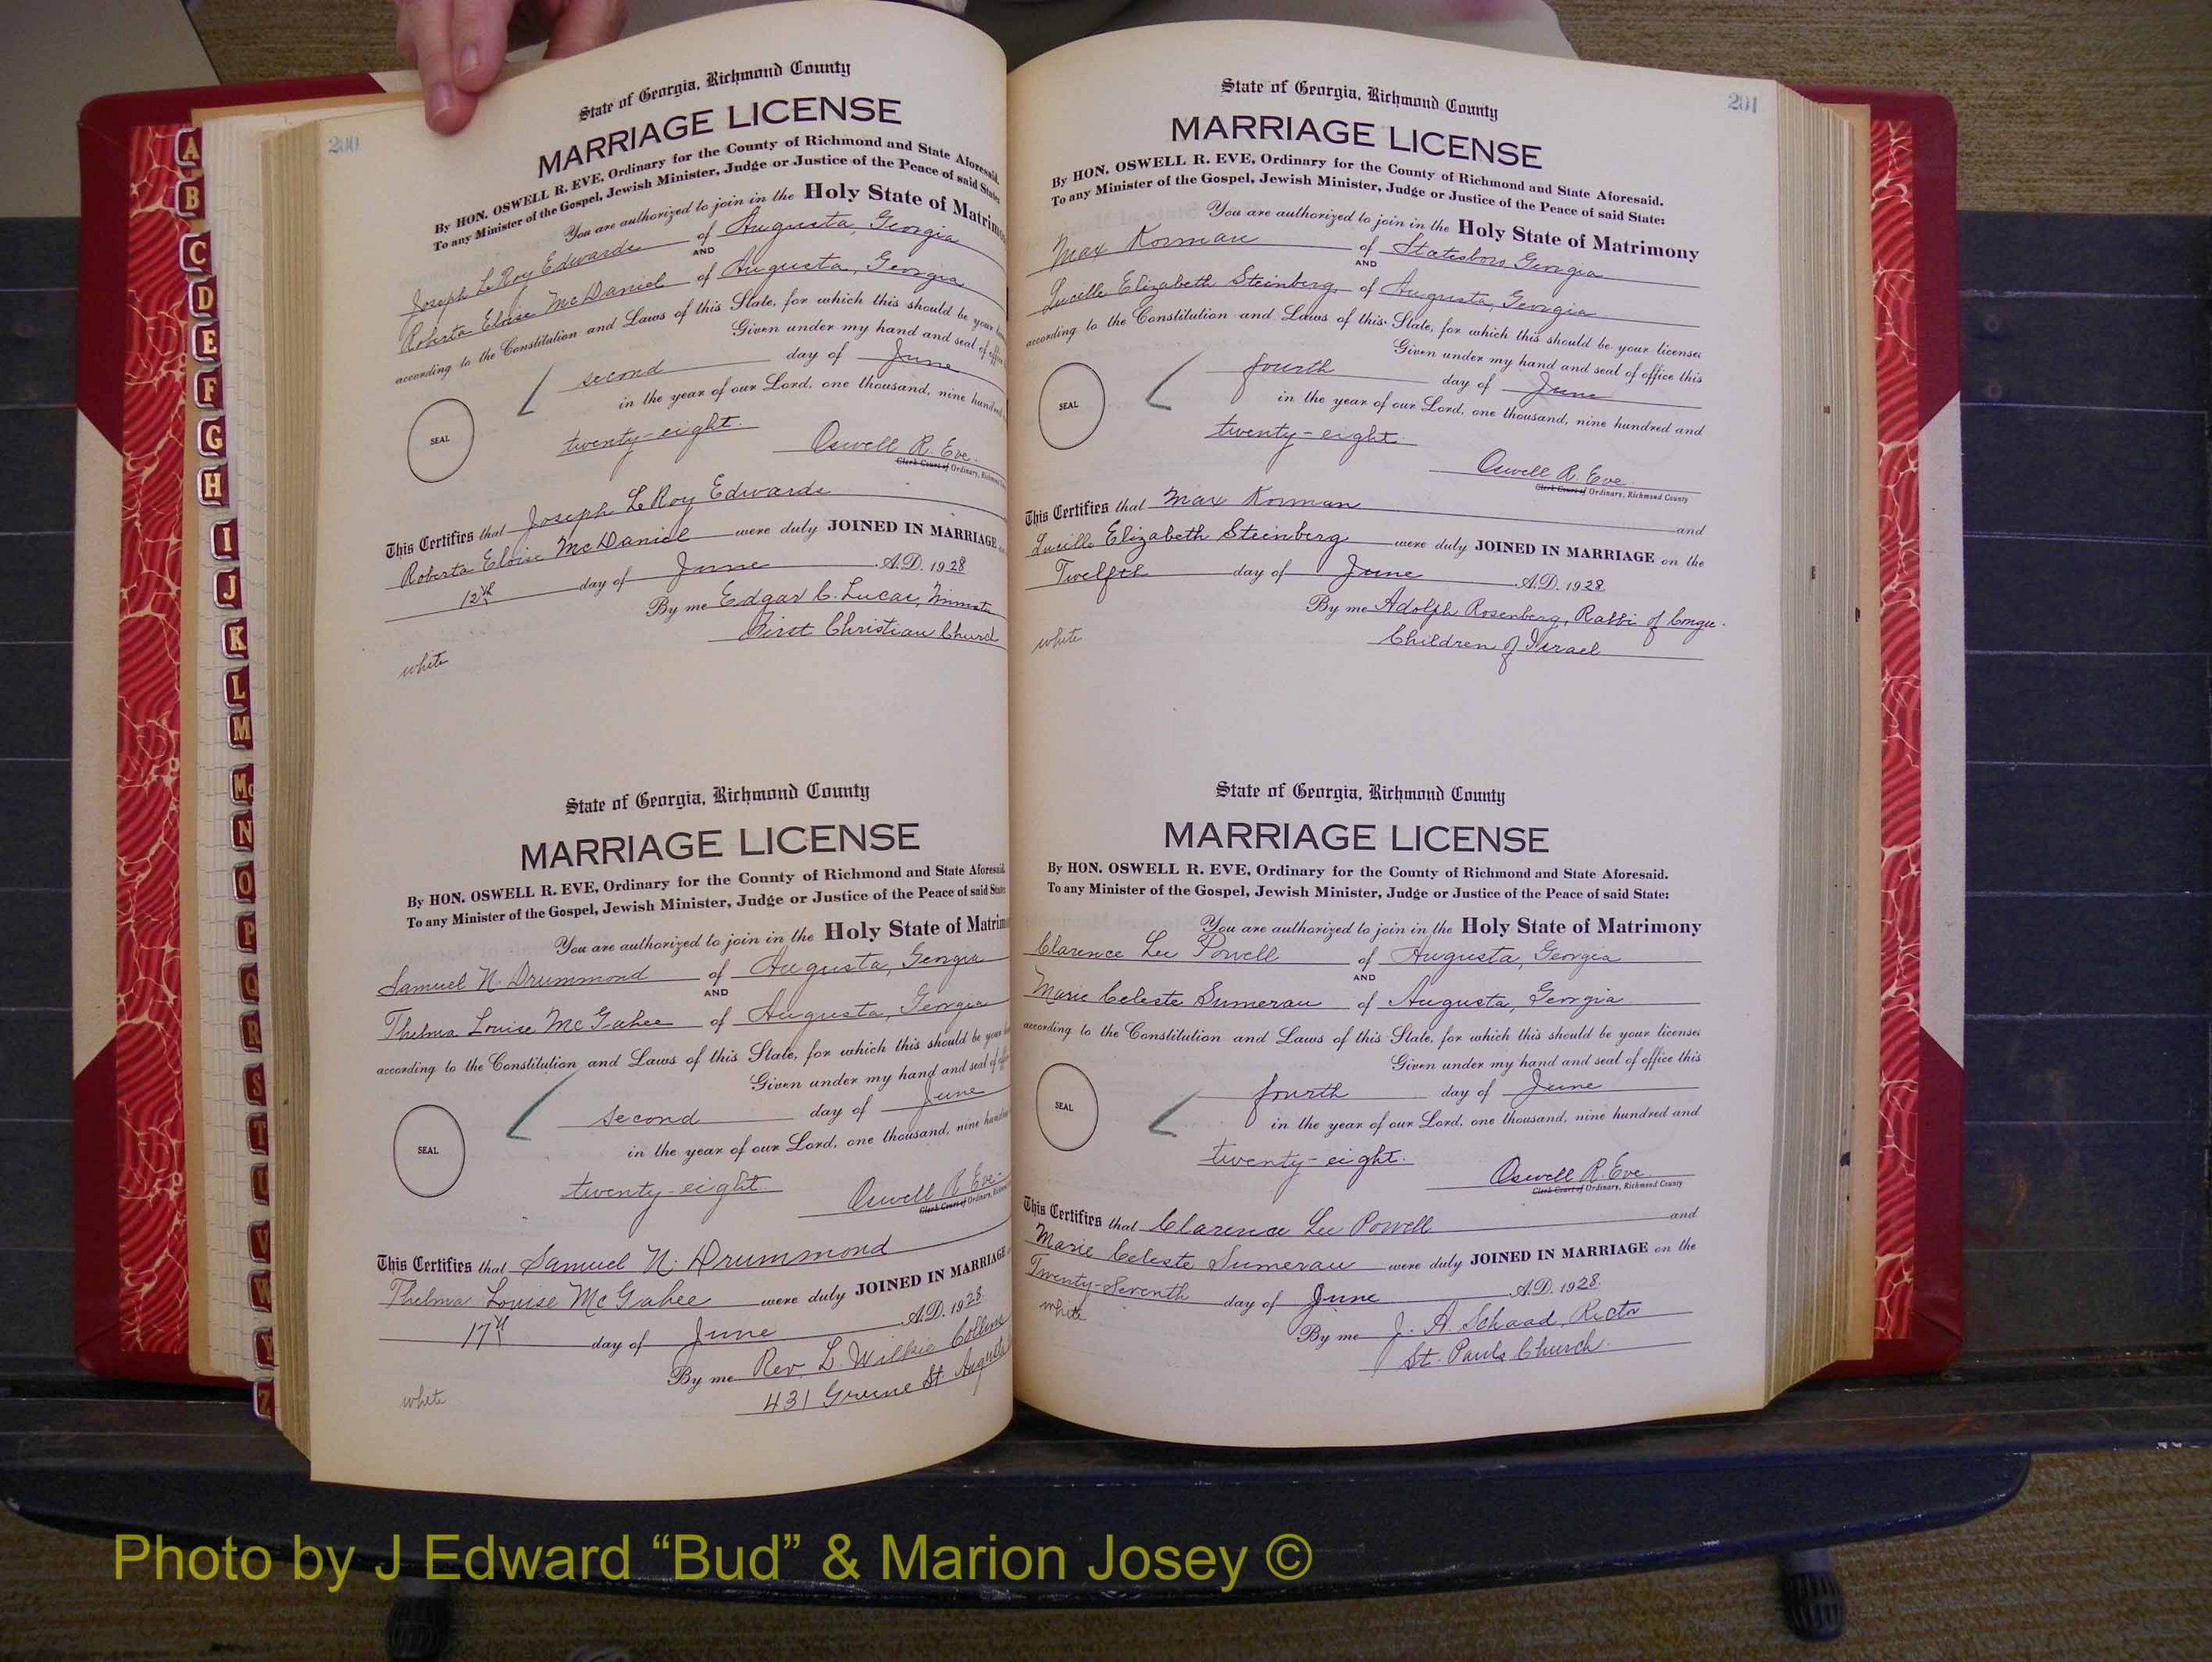 A
B
C
D
E
F
G
H
I
J
K
L
M
Mc
N
O
P
Q
R
S
T
U
V
W
Y
Z
200
State of Georgia, Richmond County
MARRIAGE LICENSE
By HON. OSWELL R. EVE, Ordinary for the County of Richmond and State Aforesaid.
To any Minister of the Gospel, Jewish Minister, Judge or Justice of the Peace of said State
You are authorized to join in the Holy State of Matrimo
Joseph LeRoy Edwards of Augusta, Georgia
AND
Roberta Eloise McDaniel of Augusta, Georgia
according to the Constitution and Laws of this State, for which this should be your
Given under my hand and seal of office
second day of June
in the year of our Lord, one thousand, nine hundred
twenty-eight.
SEAL
Oswell R. Eve
Clerk Court of Ordinary, Richmond
This Certifies that Joseph LeRoy Edwards
Roberta Eloise McDaniel were duly JOINED IN MARRIAGE
12th day of June A.D. 1928
By me Edgar C. Lucas, Minister
First Christian Church
white
State of Georgia, Richmond County
MARRIAGE LICENSE
By HON. OSWELL R. EVE, Ordinary for the County of Richmond and State Aforesaid.
To any Minister of the Gospel, Jewish Minister, Judge or Justice of the Peace of said State
You are authorized to join in the Holy State of Matrimo
Samuel N. Drummond of Augusta, Georgia
AND
Thelma Louise McGahee of Augusta, Georgia
according to the Constitution and Laws of this State, for which this should be your
Given under my hand and seal of
second day of June
in the year of our Lord, one thousand, nine hundred
twenty-eight.
SEAL
Oswell R. Eve
Clerk Court of Ordinary,
This Certifies that Samuel N. Drummond
Thelma Louise McGahee were duly JOINED IN MARRIAGE
17th day of June A.D. 1928.
By me Rev. L. Wilkie Collins
431 Greene St. Augusta
white
201
State of Georgia, Richmond County
MARRIAGE LICENSE
By HON. OSWELL R. EVE, Ordinary for the County of Richmond and State Aforesaid.
To any Minister of the Gospel, Jewish Minister, Judge or Justice of the Peace of said State:
You are authorized to join in the Holy State of Matrimony
Max Korman of Statesboro, Georgia
AND
Lucille Elizabeth Steinberg of Augusta, Georgia
according to the Constitution and Laws of this State, for which this should be your license;
Given under my hand and seal of office this
fourth day of June
in the year of our Lord, one thousand, nine hundred and
twenty-eight.
SEAL
Oswell R. Eve
Clerk Court of Ordinary, Richmond County
This Certifies that Max Korman and
Lucille Elizabeth Steinberg were duly JOINED IN MARRIAGE on the
Twelfth day of June A.D. 1928
By me Adolph Rosenberg, Rabbi of Congre.
Children of Israel
white
State of Georgia, Richmond County
MARRIAGE LICENSE
By HON. OSWELL R. EVE, Ordinary for the County of Richmond and State Aforesaid.
To any Minister of the Gospel, Jewish Minister, Judge or Justice of the Peace of said State:
You are authorized to join in the Holy State of Matrimony
Clarence Lee Powell of Augusta, Georgia
AND
Marie Celeste Sumerau of Augusta, Georgia
according to the Constitution and Laws of this State, for which this should be your license;
Given under my hand and seal of office this
fourth day of June
in the year of our Lord, one thousand, nine hundred and
twenty-eight.
SEAL
Oswell R. Eve
Clerk Court of Ordinary, Richmond County
This Certifies that Clarence Lee Powell and
Marie Celeste Sumerau were duly JOINED IN MARRIAGE on the
Twenty-Seventh day of June A.D. 1928.
By me J. A. Schaad, Rector
St. Pauls Church.
white
Photo by J Edward “Bud” & Marion Josey ©